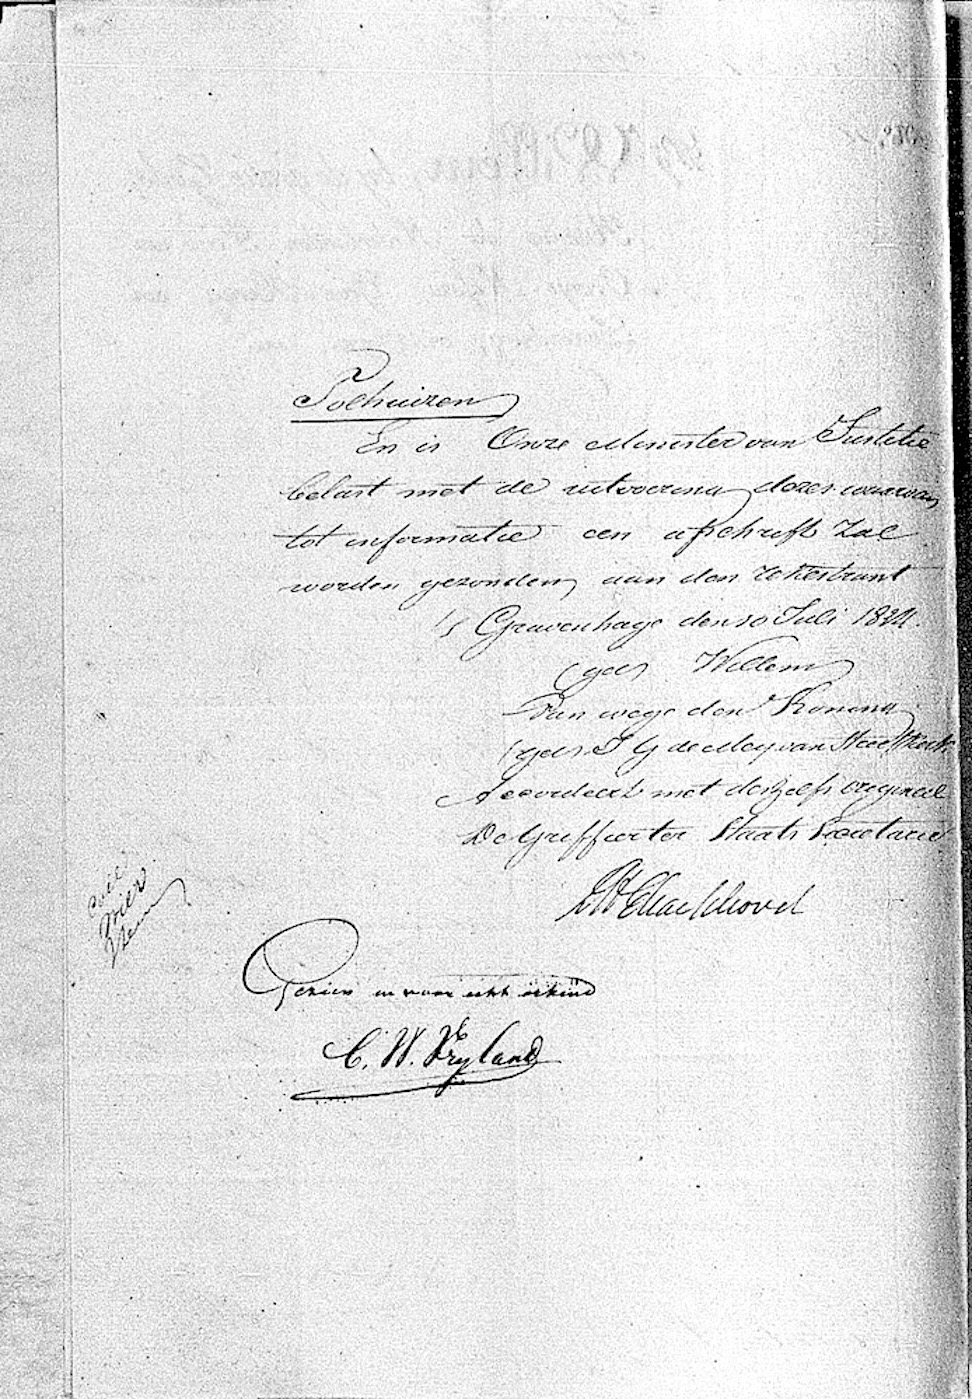 Tolhuizen
En is Onze Minister van Justitie
belast met de uitvoering dezes waarvan
tot informatie een afschrift zal
worden gezonden aan den rekestrant
's Gravenhage den 10 Juli 1824.
(get) Willem
Van wege den Koning
(get) J G de Mey van Streefkerk
Accordeert met deszelfs origineel
De Griffier ter Staats Secretarie
Gezien en voor echt erkend
C. W. Vryland